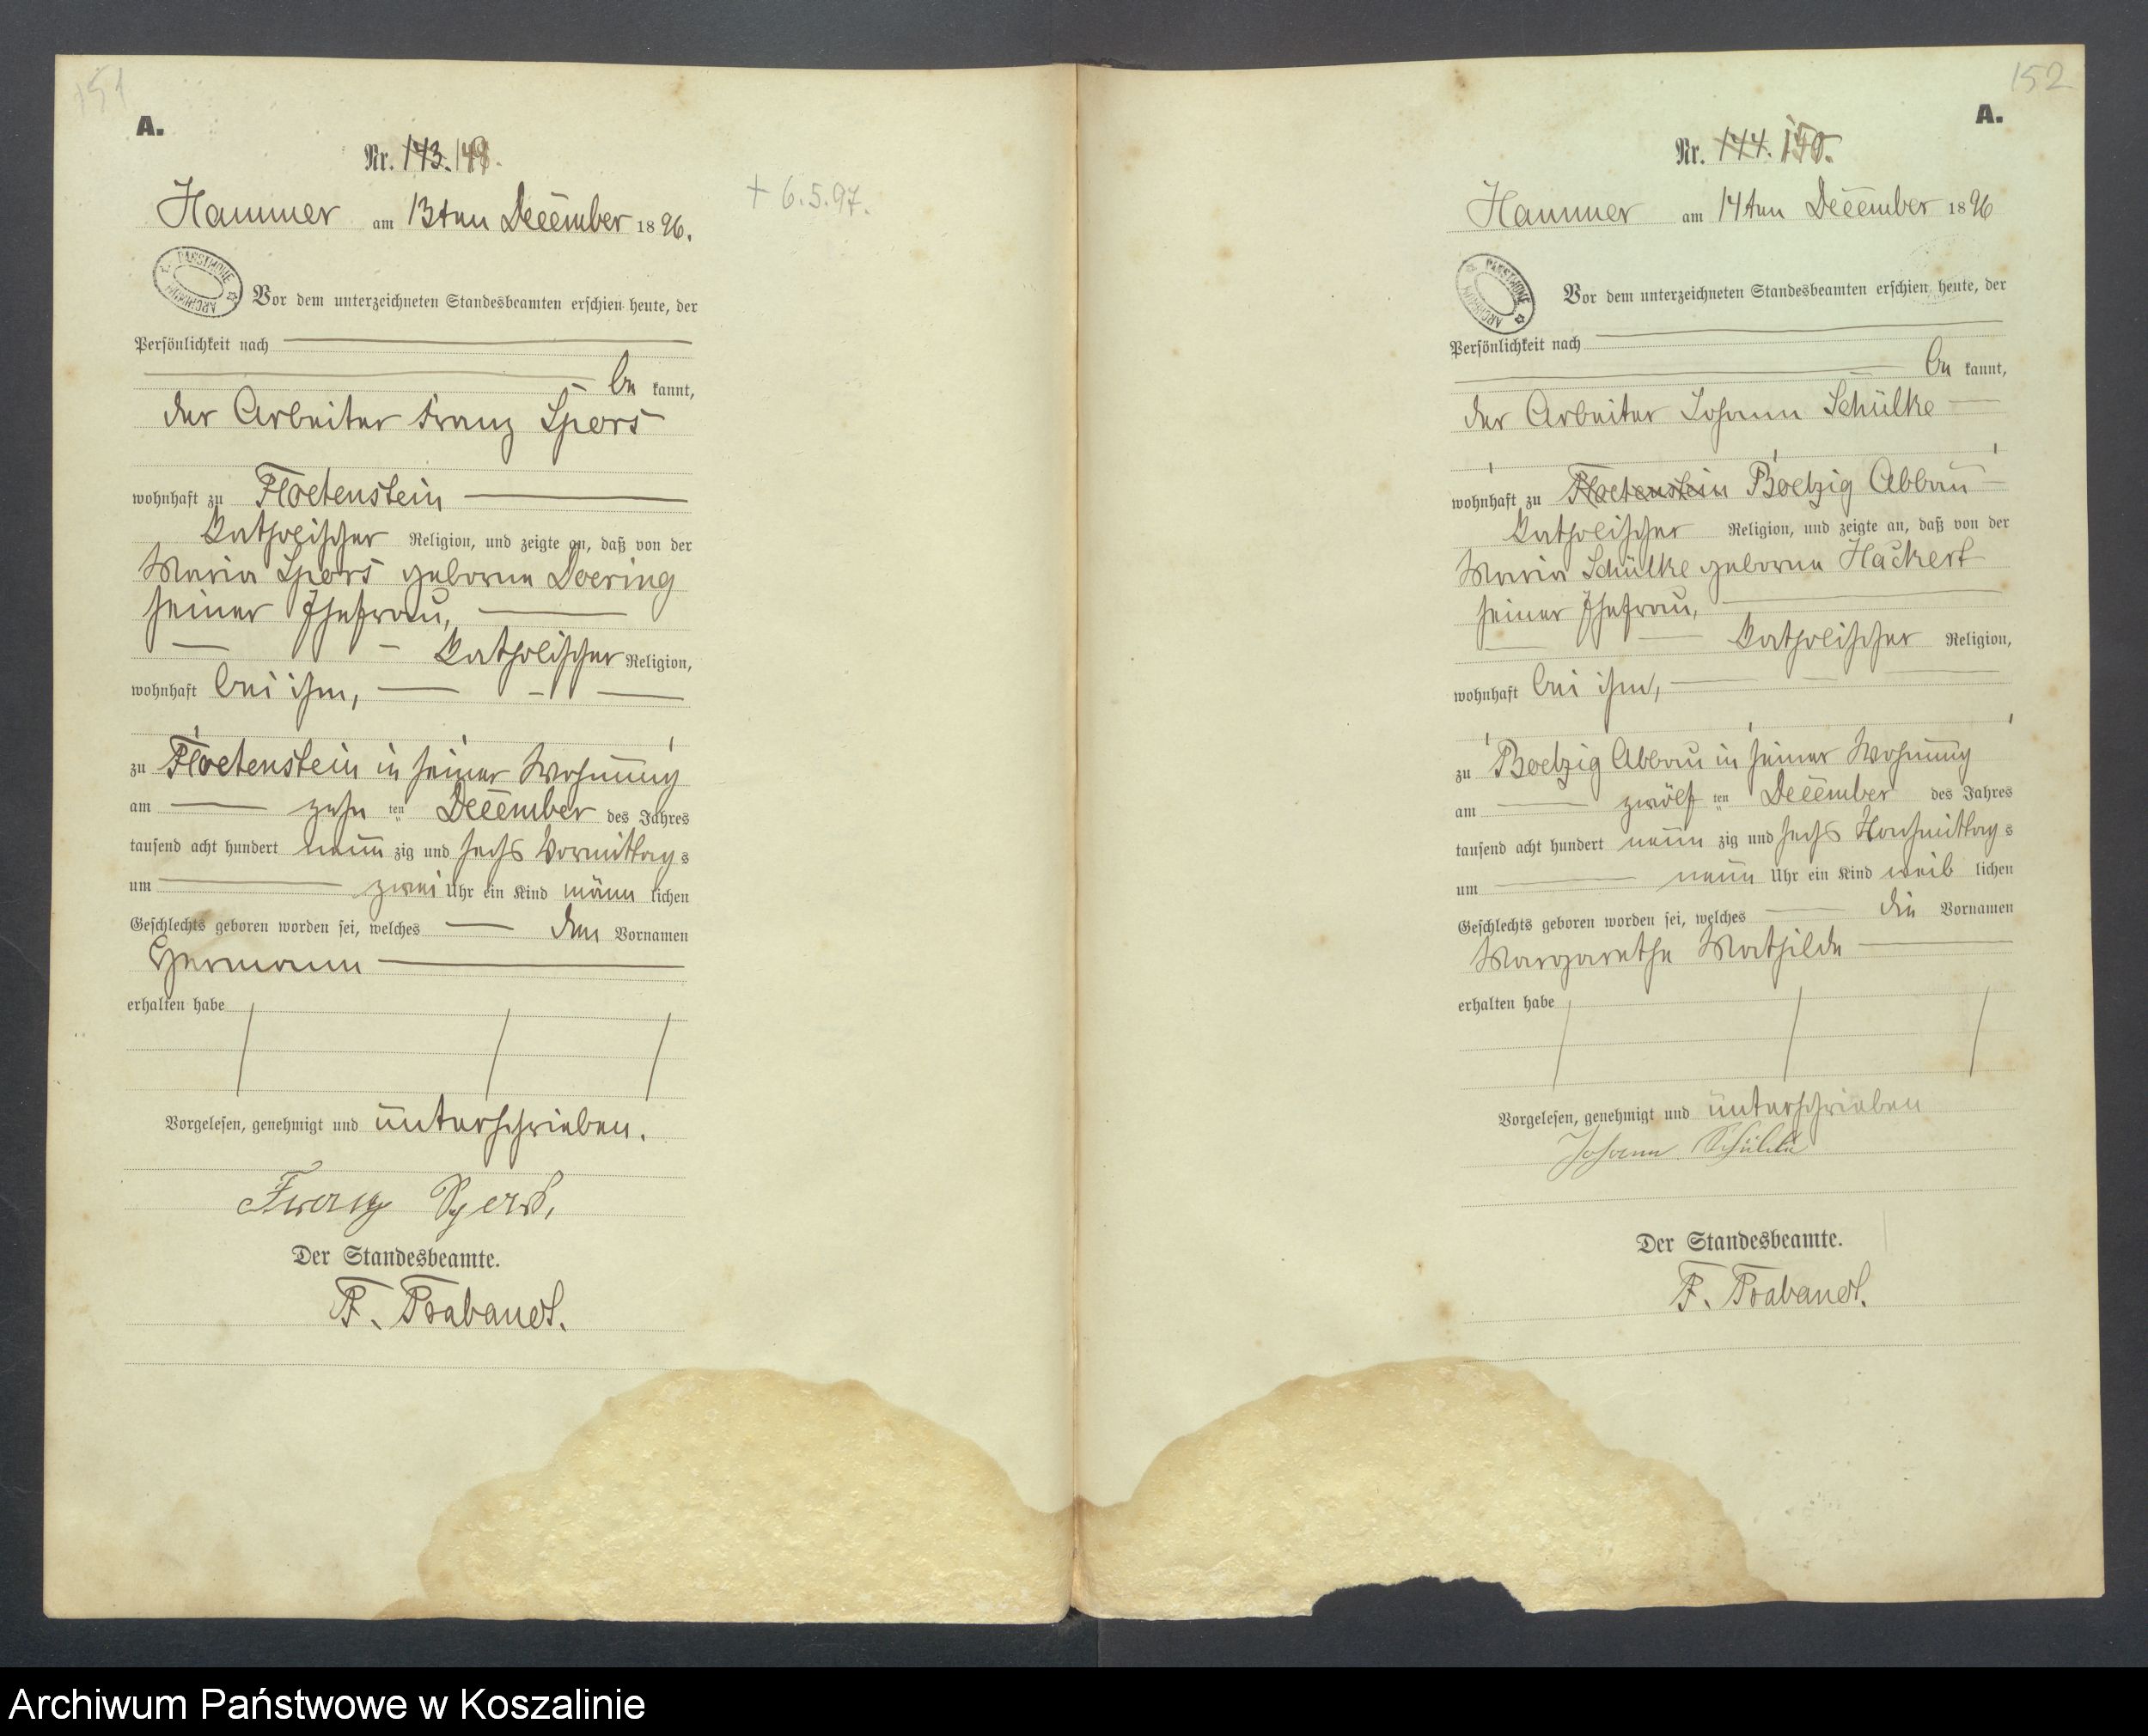 151
A.
Nr. 143. 149.
Hammer am 13ten December 1896.
+ 6.5.97.
ARCHIWUM PAŃSTWOWE
Vor dem unterzeichneten Standesbeamten erschien heute, der
Persönlichkeit nach
be kannt,
der Arbeiter Franz Spors
wohnhaft zu Floetenstein
katholischer Religion, und zeigte an, daß von der
Maria Spors geborne Doering
seiner Ehefrau,
katholischer Religion,
wohnhaft bei ihm,
zu Floetenstein in seiner Wohnung
am zehn ten December des Jahres
tausend acht hundert neun zig und sechs Vormittag s
um zwei Uhr ein Kind männ lichen
Geschlechts geboren worden sei, welches den Vornamen
Hermann
erhalten habe
Vorgelesen, genehmigt und unterschrieben.
Franz Spors,
Der Standesbeamte.
F. Brabandt.
152
A.
Nr. 144. 150.
Hammer am 14ten December 1896
ARCHIWUM PAŃSTWOWE
Vor dem unterzeichneten Standesbeamten erschien heute, der
Persönlichkeit nach
be kannt,
der Arbeiter Johann Schülke
wohnhaft zu Floetenstein Boetzig Abbau
katholischer Religion, und zeigte an, daß von der
Maria Schülke geborne Hackert
seiner Ehefrau,
katholischer Religion,
wohnhaft bei ihm,
zu Boetzig Abbau in seiner Wohnung
am zwölf ten December des Jahres
tausend acht hundert neun zig und sechs Nachmittag s
um neun Uhr ein Kind weib lichen
Geschlechts geboren worden sei, welches die Vornamen
Margarethe Mathilde
erhalten habe
Vorgelesen, genehmigt und unterschrieben
Johann Schülke
Der Standesbeamte.
F. Brabandt.
Archiwum Państwowe w Koszalinie